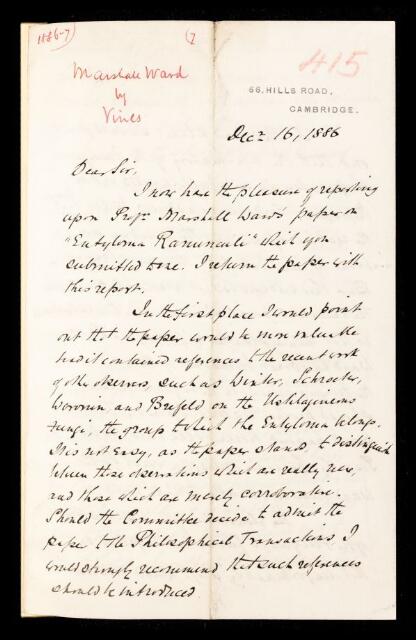 1886-7)
(7
415
Marshall Ward
by
Vines
66, HILLS ROAD,
CAMBRIDGE.
Decr 16, 1886
Dear Sir,
I now have the pleasure of reporting
upon Profr. Marshall Ward's paper on
"Entyloma Ranunculi" which you
submitted to me. I return the paper with
this report.
In the first place I would point
out that the paper would be more valuable
had it contained references to the recent work
of other observers, such as Winter, Schroeter,
Woronin and Brefeld on the Ustilagineous
Fungi, the group to which the Entyloma belongs.
It is not easy, as the paper stands, to distinguish
between those observations which are really new,
and those which are merely corroborative.
Should the Committee decide to admit the
paper to the Philosophical Transactions I
would strongly recommend that such references
should be introduced.